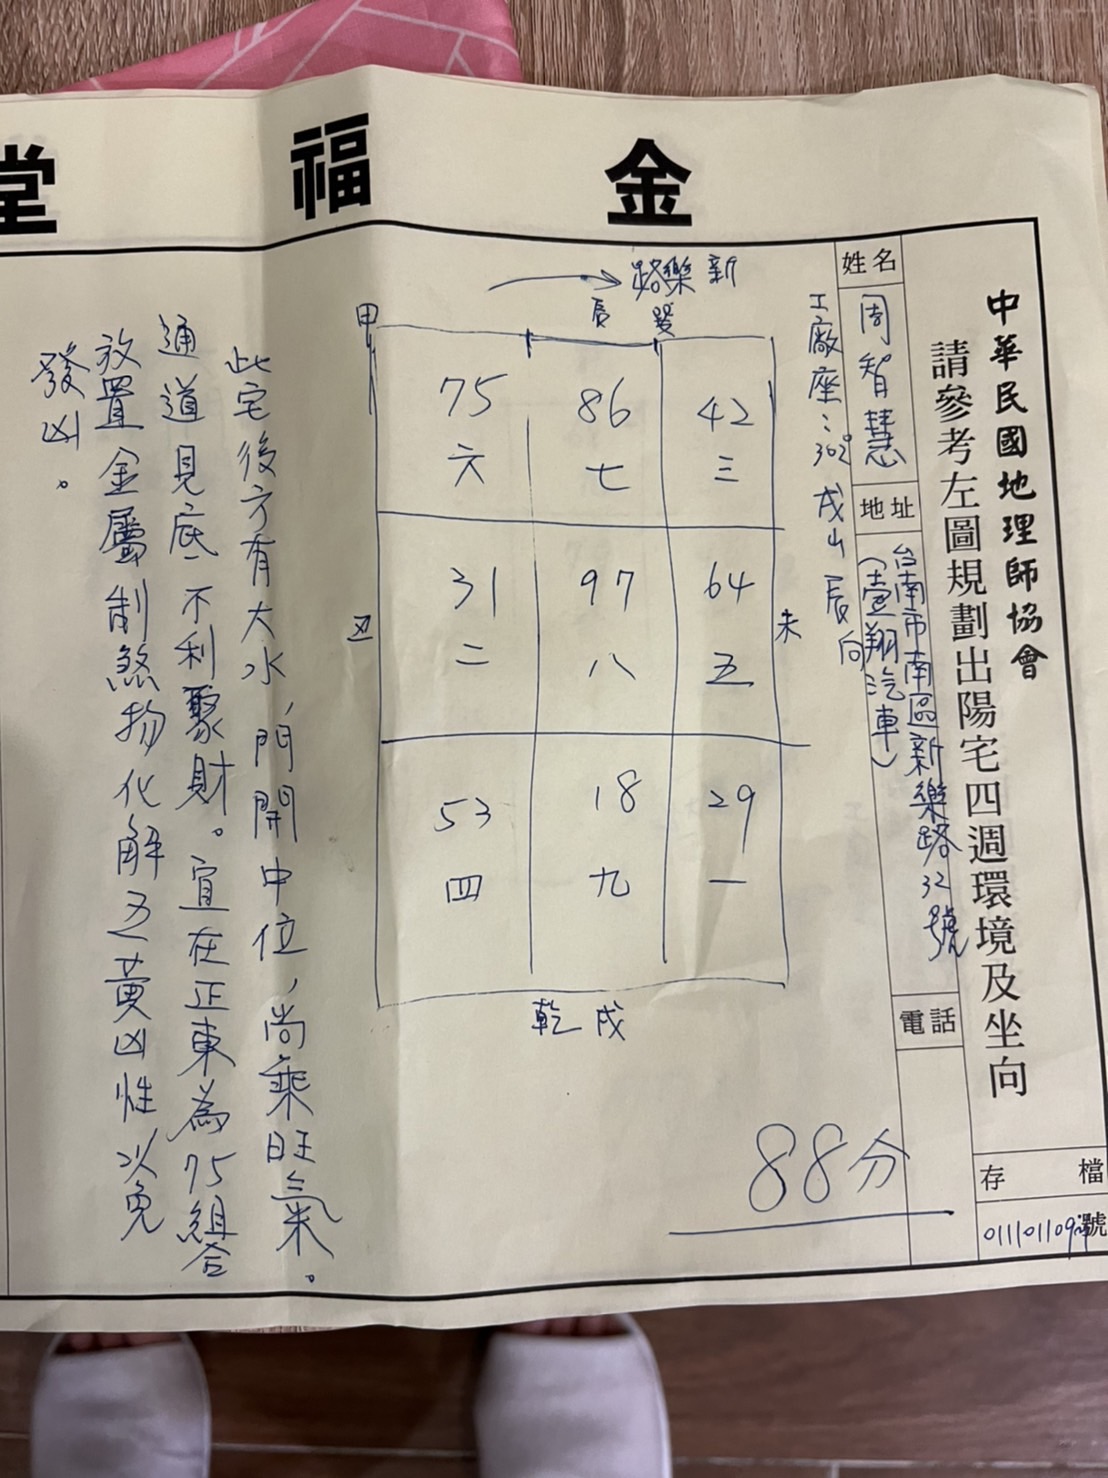 金福堂
中華民國地理師協會
請參考左圖規劃出陽宅四週環境及坐向
存檔
號
姓名
周智慧
地址
台南市南區新樂路32號
(壹翔汽車)
電話
工廠座:302° 戌山辰向
新樂路
辰 巽
甲
75 86 42
六 七 三
丑
31 97 64
二 八 五
未
53 18 29
四 九 一
乾 戌
88分
此宅後方有大水,門開中位,尚乘旺氣。
通道見底不利聚財。宜在正東為75組合
放置金屬制煞物化解五黃凶性以免
發凶。